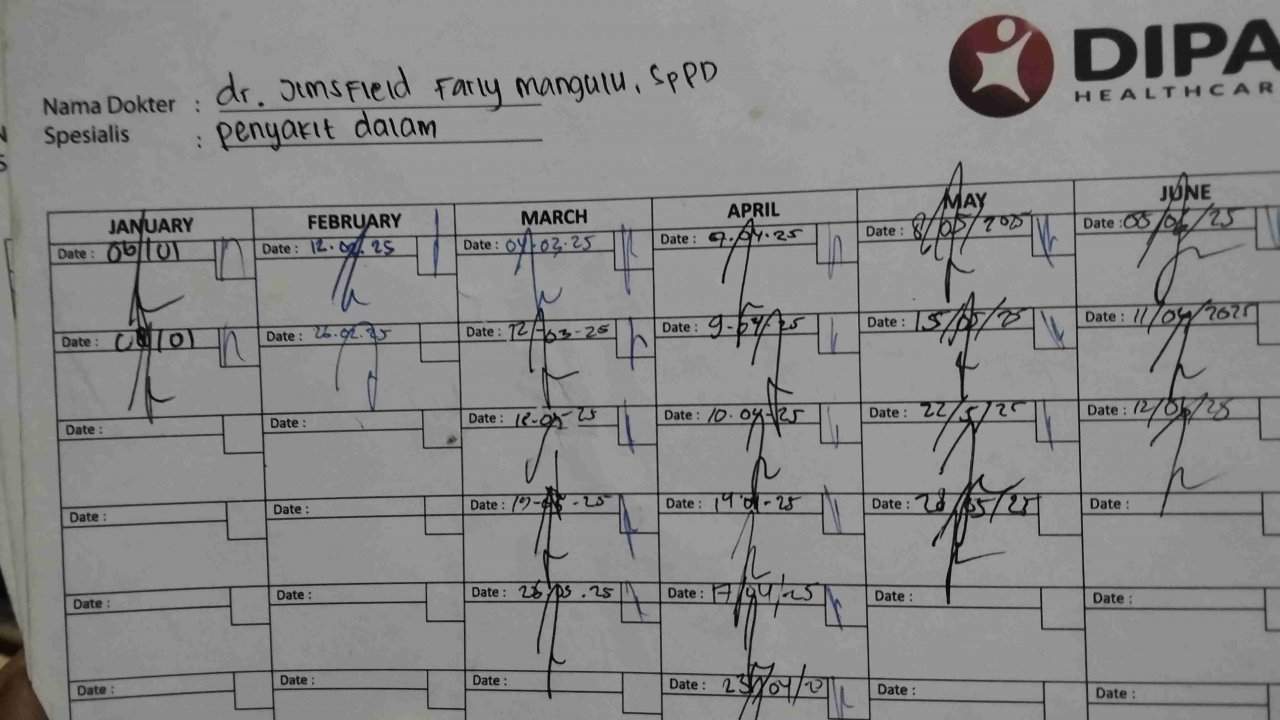 DIPA
HEALTHCAR
Nama Dokter : dr. Jimsfield Farly Mangulu, SpPD
Spesialis : Penyakit dalam
JANUARY FEBRUARY MARCH APRIL MAY JUNE
Date : 06/01 Date : 12.02.25 Date : 04.03.25 Date : 07.04.25 Date : 8/05/2025 Date : 05/06/25
Date : 08/01 Date : 26.02.25 Date : 12-03-25 Date : 9-04-25 Date : 15/05/25 Date : 11/06/2025
Date : Date : Date : Date : 10.04-25 Date : 22/5/25 Date : 12/06/25
Date : Date : Date : 19-03-25 Date : 14 04-25 Date : 28/05/25 Date :
Date : Date : Date : 26.03.25 Date : 17/04/25 Date : Date :
Date : Date : Date : Date : 23/04/2 Date : Date :